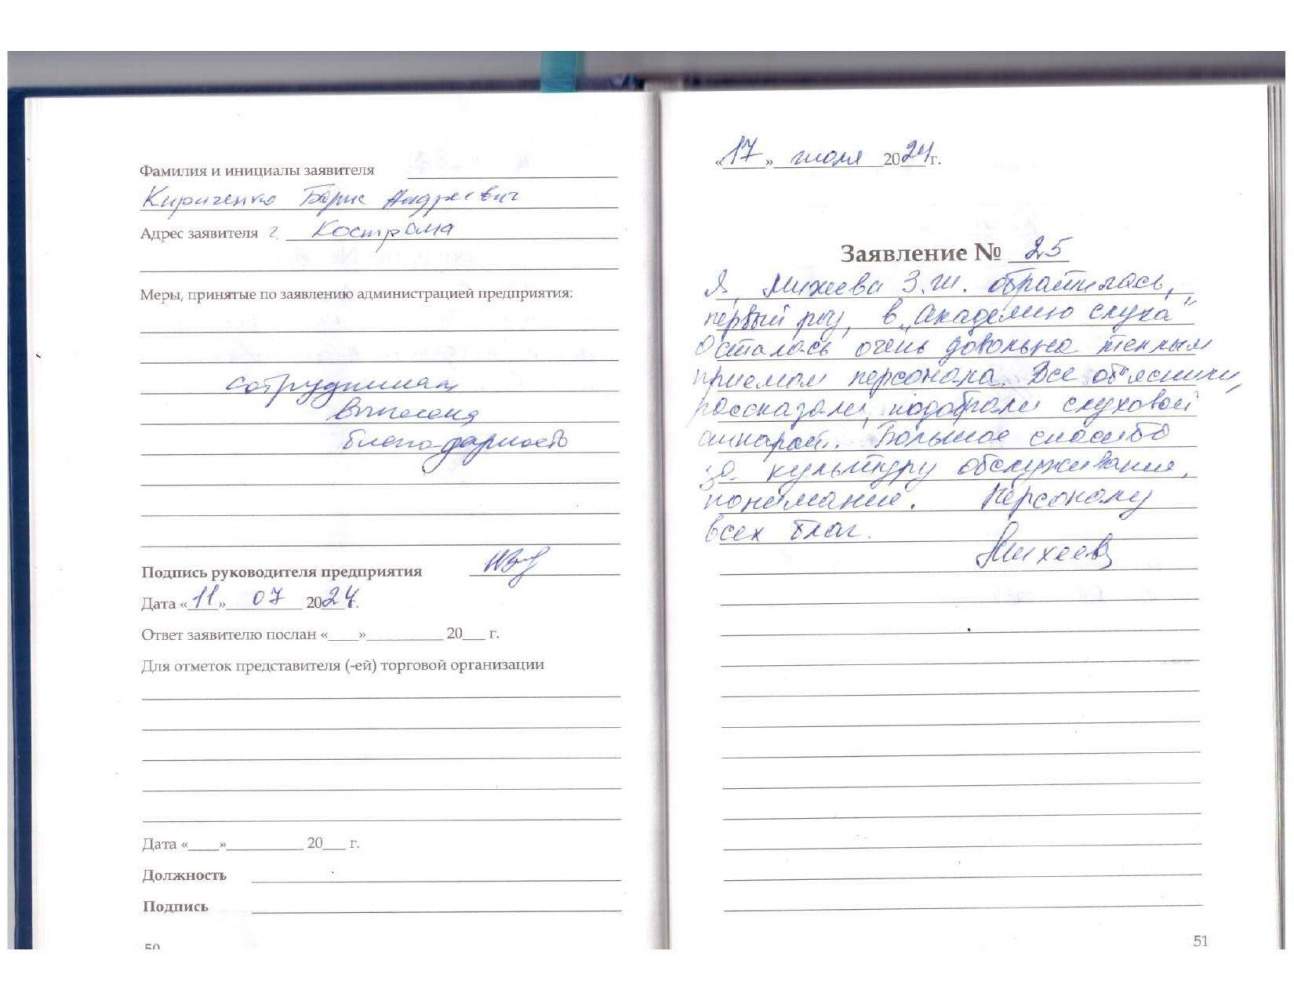 Фамилия и инициалы заявителя
Кириченко Борис Андреевич
Адрес заявителя г. Кострома
Меры, принятые по заявлению администрацией предприятия:
сотрудникам
вынесена
благодарность
Подпись руководителя предприятия
Дата «11» 07 2024г.
Ответ заявителю послан «___»__________ 20___ г.
Для отметок представителя (-ей) торговой организации
Дата «____»__________ 20___ г.
Должность
Подпись
50
«17» июля 2024г.
Заявление № 25
Я, Михеева З.Ш. обратилась,
первый раз, в "Академию слуха"
Осталась очень довольна теплым
приемом персонала. Все объяснили,
рассказали, подобрали слуховой
аппарат. Большое спасибо
за культуру обслуживания,
понимание. Персоналу
всех благ.
Михеева
51